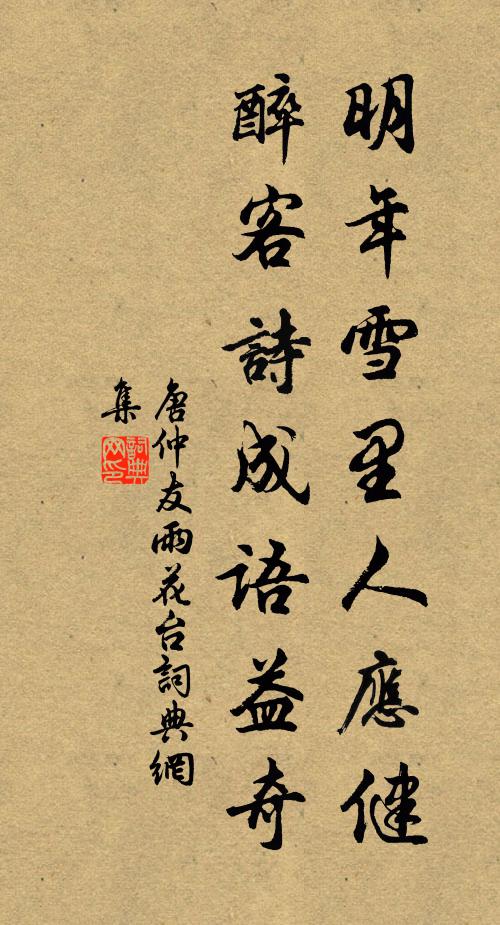 明年雪里人應健
醉客詩成語益奇
唐仲友雨花台詞典網
集
詞典网印